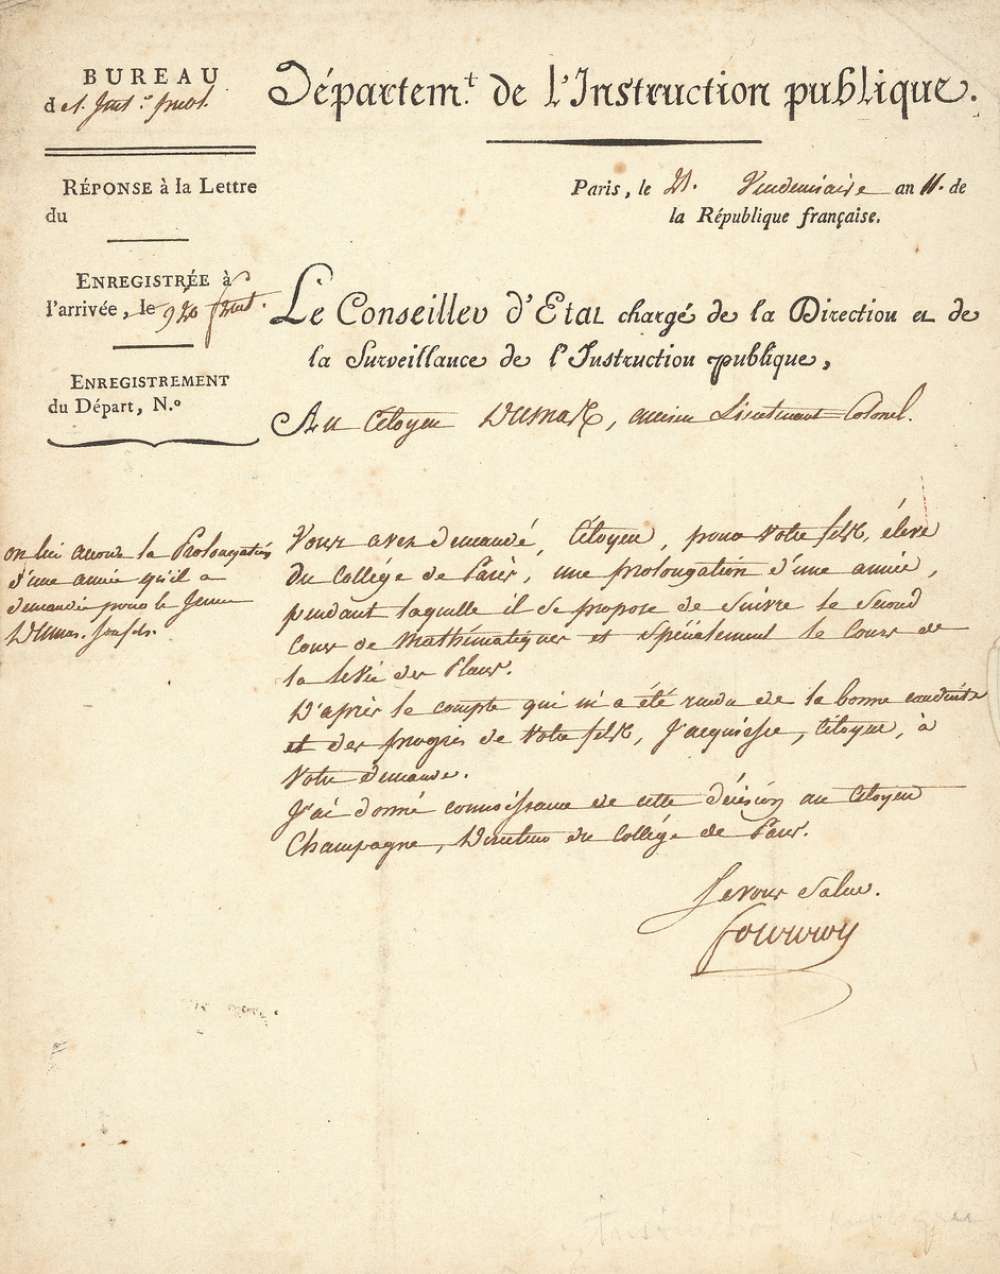 BUREAU
Départem.t de l'Instruction publique.
RÉPONSE à la Lettre
du
Paris, le 21. Vendemiaire an 11. de
la République française.
ENREGISTRÉE à
l'arrivée, le
Le Conseiller d'Etat chargé de la Direction et de
la Surveillance de l'Instruction publique,
ENREGISTREMENT
du Départ, N.º
Au Citoyen Dumas, ancien Lieutenant Colonel.
on lui accorde la Prolongation
d'une année qu'il a
demandée pour le jeune
Dumas. son fils.
Vous avez demandé, Citoyen, pour votre fils, éleve
du Collége de Paris, une prolongation d'une année,
pendant laquelle il se propose de suivre le second
Cours de Mathématiques et spécialement le Cours de
la levée des Plans.
D'après le compte qui m'a été rendu de la bonne conduite
et des progrès de votre fils, J'acquiesce, Citoyen, à
Votre demande.
J'ai donné connoissance de cette décision au Citoyen
Champagne, Directeur du Collége de Paris.
Je vous salue.
Fourcroy
Instruction publique